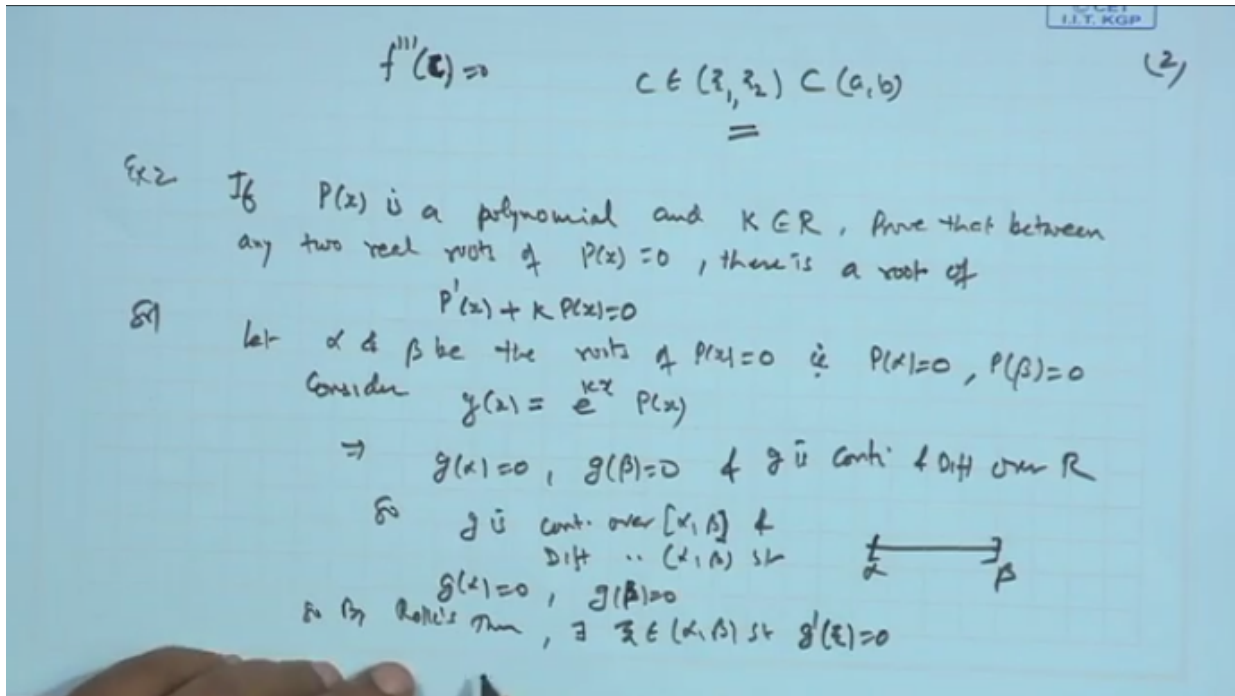 © CET
I.I.T. KGP
f'''(c)=0 c ∈ (ξ1, ξ2) ⊂ (a,b) (2)
Ex2 If P(x) is a polynomial and K ∈ R, Prove that between
any two real roots of P(x)=0, there is a root of
P'(x) + K P(x)=0
Sol Let α & β be the roots of P(x)=0 ie P(α)=0, P(β)=0
Consider g(x) = e^{Kx} P(x)
⇒ g(α)=0, g(β)=0 & g is conti & Diff over R
So g is cont. over [α, β] &
Diff .. (α, β) st
α β
g(α)=0, g(β)=0
So By Rolle's Thm, ∃ ξ ∈ (α, β) st g'(ξ)=0